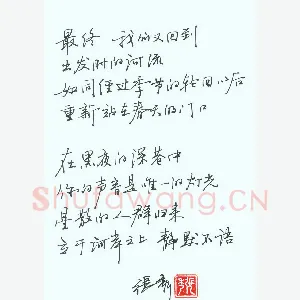 最终 我们又回到
出发时的河流
如同经过季节的轮回以后
重新站在春天的门口
在黑夜的深巷中
你的声音是唯一的灯光
星散的人群归来
立于河岸之上 静默不语
Shufawang.CN